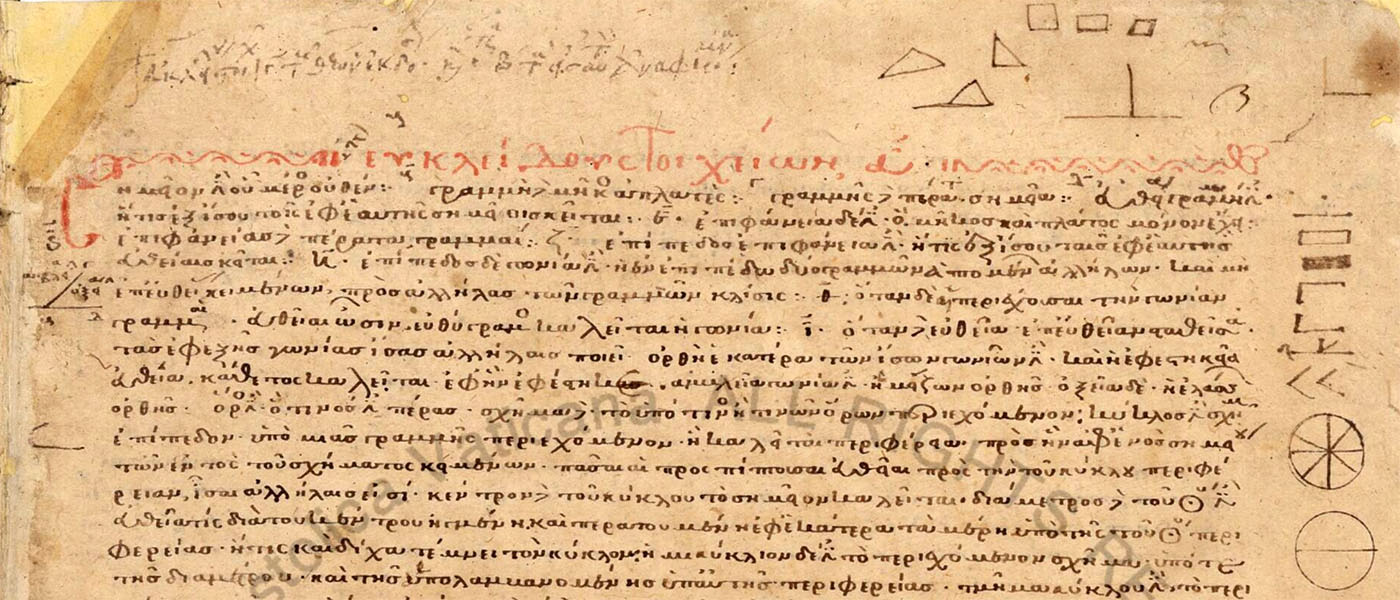 ευκλείδους στοιχείων α
ημεῖον οὗ μέρος οὐθέν: γραμμὴ δὲ μῆκος ἀπλατές: γραμμῆς δὲ πέρατα σημεῖα εὐθεῖα γραμμή ἐστιν
ἥτις ἐξ ἴσου τοῖς ἐφ' ἑαυτῆς σημείοις κεῖται: ἐπιφάνεια δέ ἐστιν ὃ μῆκος καὶ πλάτος μόνον ἔχει:
ἐπιφανείας δὲ πέρατα γραμμαί: ζ ἐπίπεδος ἐπιφάνειά ἐστιν ἥτις ἐξ ἴσου ταῖς ἐφ' ἑαυτῆς
εὐθείαις κεῖται: ἐπίπεδος δὲ γωνία ἐστὶν ἡ ἐν ἐπιπέδω δύο γραμμῶν ἁπτομένων ἀλλήλων καὶ μὴ
ἐπ' εὐθείας κειμένων πρὸς ἀλλήλας τῶν γραμμῶν κλίσις: θ ὅταν δὲ αἱ περιέχουσαι τὴν γωνίαν
γραμμαὶ εὐθεῖαι ὦσιν εὐθύγραμμος καλεῖται ἡ γωνία: ι ὅταν δὲ εὐθεῖα ἐπ' εὐθεῖαν σταθεῖσα
τὰς ἐφεξῆς γωνίας ἴσας ἀλλήλαις ποιεῖ ὀρθὴ ἑκατέρα τῶν ἴσων γωνιῶν ἐστι καὶ ἡ ἐφεστηκυῖα
εὐθεῖα κάθετος καλεῖται ἐφ' ἣν ἐφέστηκεν ἀμβλεῖα γωνία ἐστὶν ἡ μείζων ὀρθῆς ὀξεῖα δὲ ἡ ἐλάσσων
ὀρθῆς ὅρος ἐστὶν ὅ τινός ἐστι πέρας σχῆμά ἐστι τὸ ὑπό τινος ἤ τινων ὅρων περιεχόμενον κύκλος ἐστὶ σχῆμα
ἐπίπεδον ὑπὸ μιᾶς γραμμῆς περιεχόμενον ἣ καλεῖται περιφέρεια πρὸς ἣν ἀφ' ἑνὸς σημείου
τῶν ἐντὸς τοῦ σχήματος κειμένων πᾶσαι αἱ προσπίπτουσαι εὐθεῖαι πρὸς τὴν τοῦ κύκλου περιφέ
ρειαν ἴσαι ἀλλήλαις εἰσί κέντρον δὲ τοῦ κύκλου τὸ σημεῖον καλεῖται διάμετρος δὲ τοῦ κύκλου ἐστὶν
εὐθεῖά τις διὰ τοῦ κέντρου ἠγμένη καὶ περατουμένη ἐφ' ἑκάτερα τὰ μέρη ὑπὸ τῆς τοῦ κύκλου περι
φερείας ἥτις καὶ δίχα τέμνει τὸν κύκλον ἡμικύκλιον δέ ἐστι τὸ περιεχόμενον σχῆμα ὑπό τε
τῆς διαμέτρου καὶ τῆς ἀπολαμβανομένης ὑπ' αὐτῆς περιφερείας τμῆμα κύκλου ἐστὶ τὸ περι
stolica Vaticana ALL RIGHTS RE